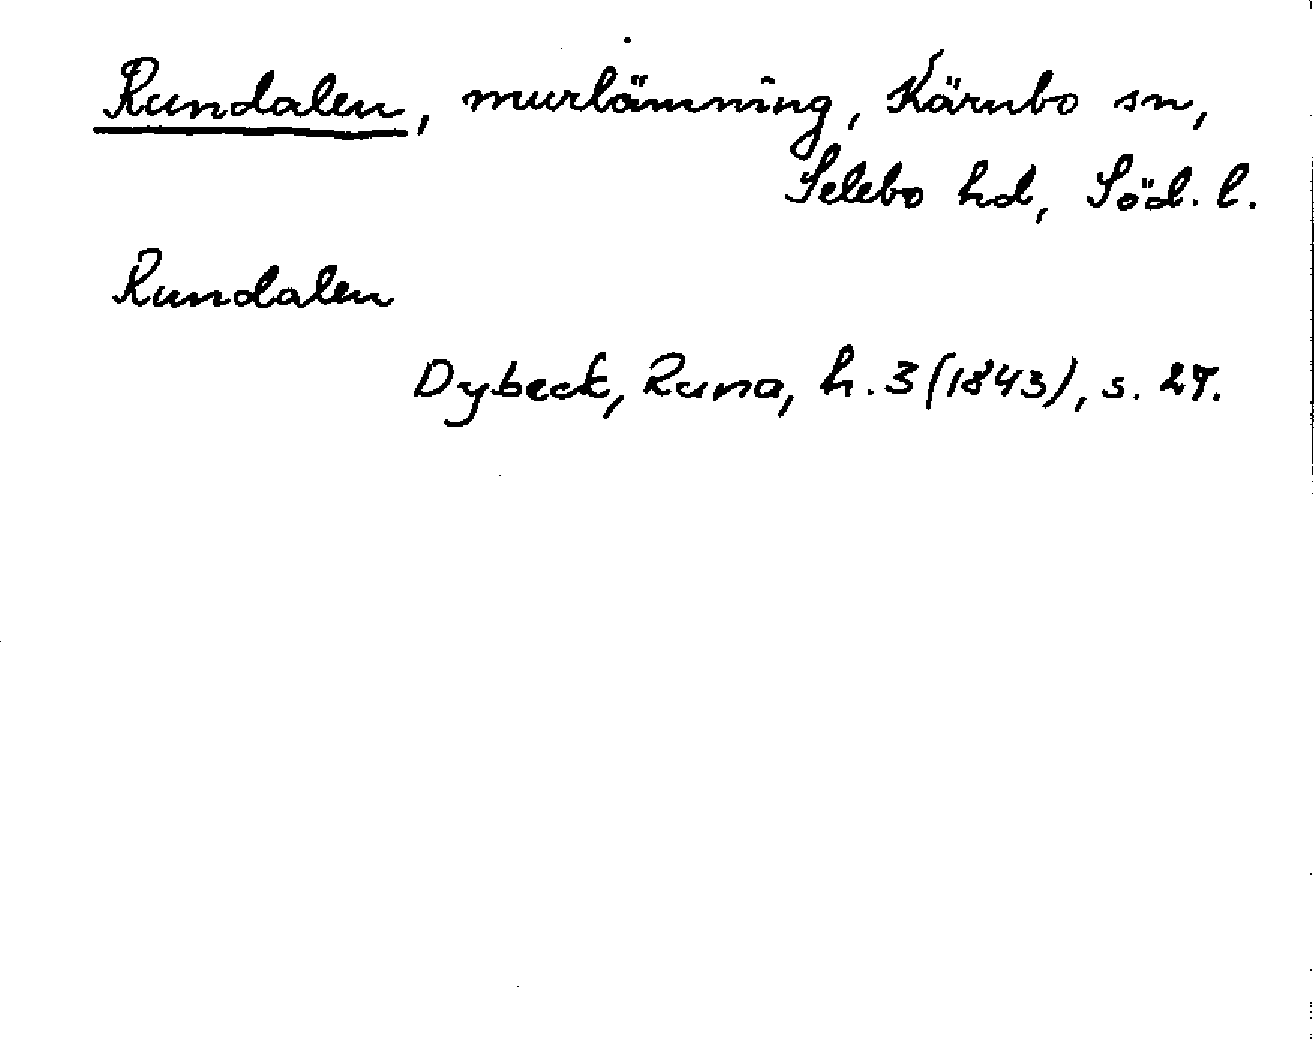 Rundalen, murlämning, Kärnbo sn,
Selebo hd, Söd. l.
Rundalen
Dybeck, Runa, h. 3 (1843), s. 27.